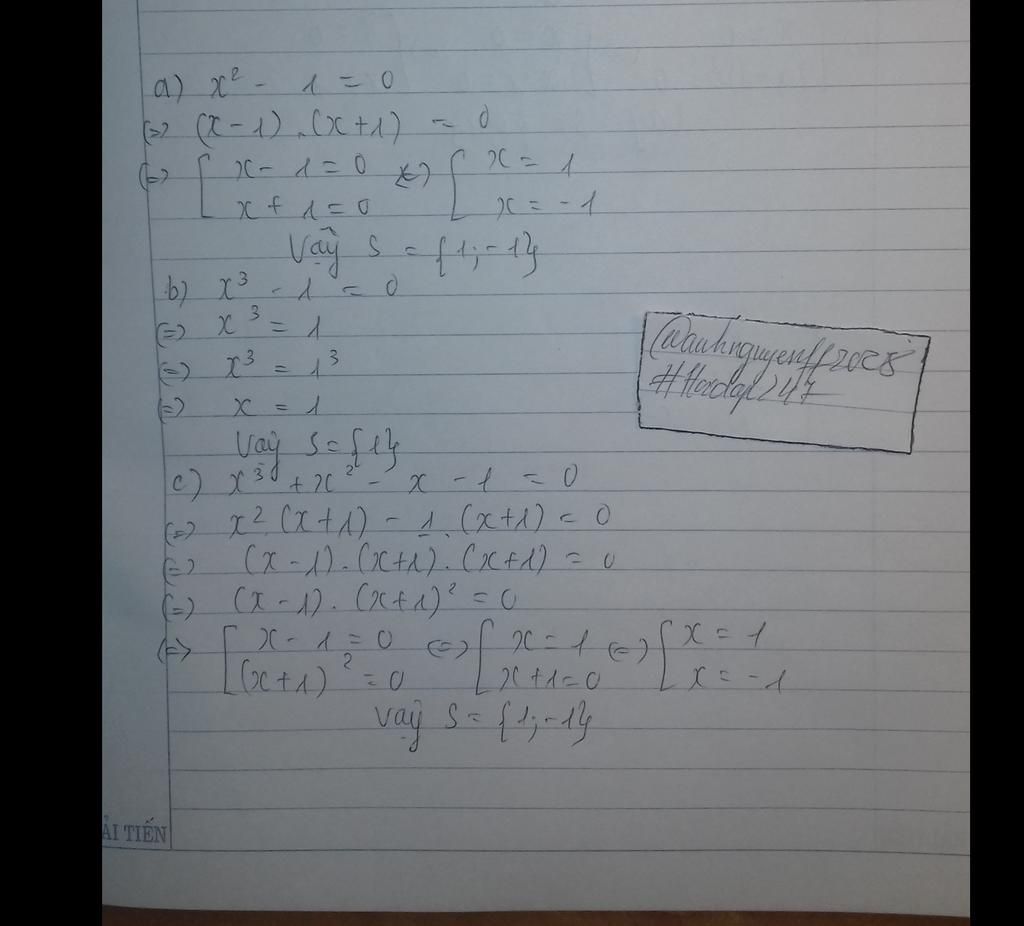 a) x² - 1 = 0
<=> (x-1).(x+1) = 0
<=> [ x - 1 = 0 <=> [ x = 1
x + 1 = 0 x = -1
Vậy S = {1; -1}
b) x³ - 1 = 0
<=> x³ = 1
<=> x³ = 1³
<=> x = 1
Vậy S = {1}
c) x³ + x² - x - 1 = 0
<=> x².(x+1) - 1.(x+1) = 0
<=> (x-1).(x+1).(x+1) = 0
<=> (x-1).(x+1)² = 0
<=> [ x - 1 = 0 <=> [ x = 1 <=> [ x = 1
(x+1)² = 0 x+1=0 x = -1
Vậy S = {1; -1}
#Hoidap247
ẢI TIẾN